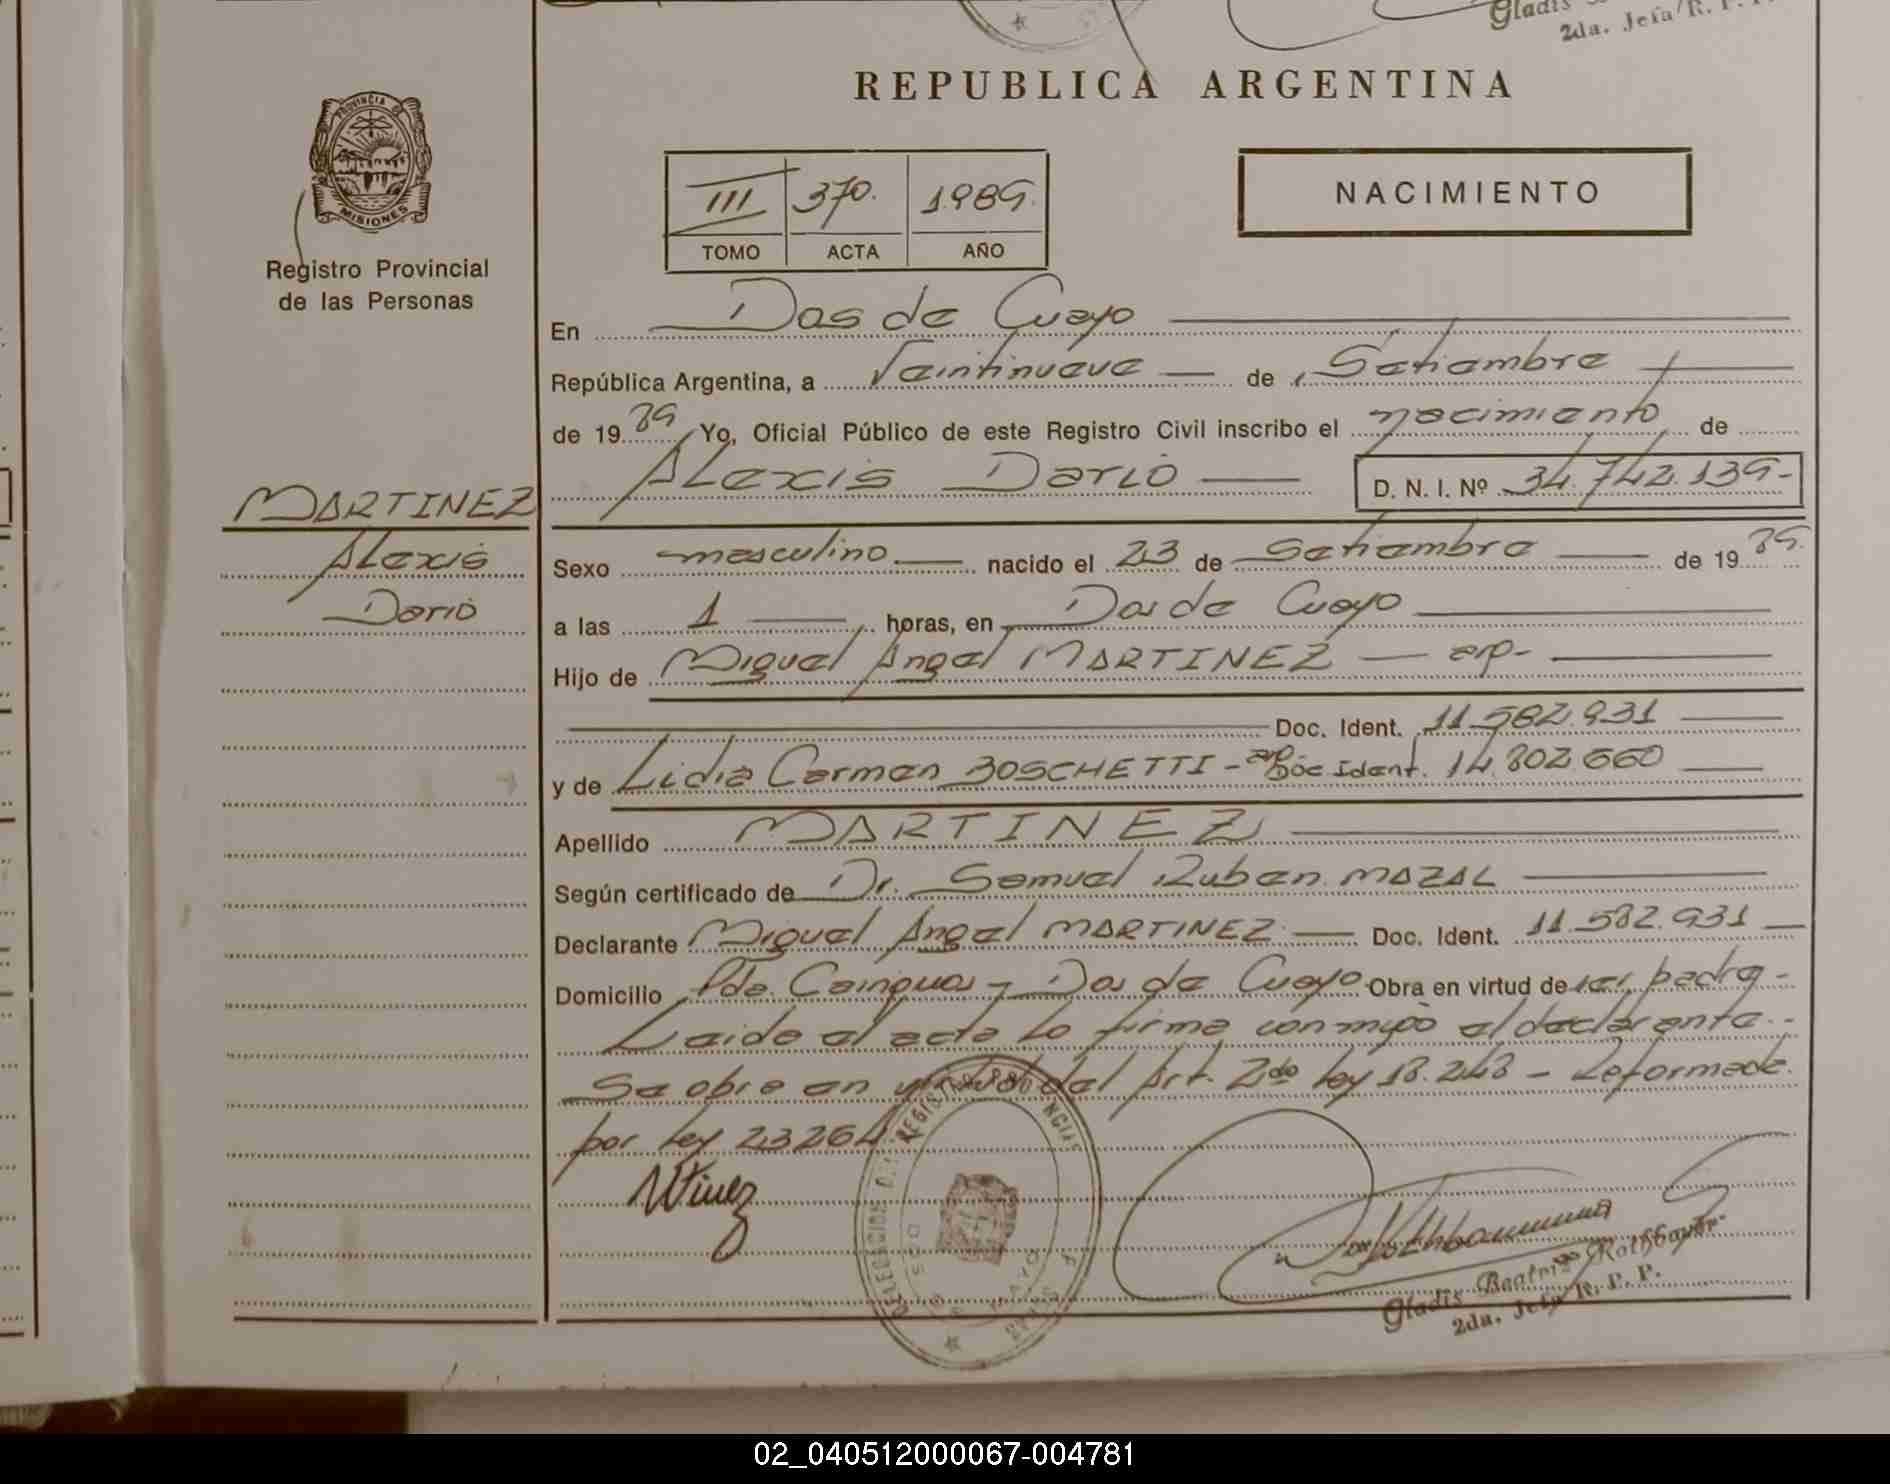 Gladis
2da. Jefa R. P. P.
REPUBLICA ARGENTINA
PROVINCIA DE
MISIONES
Registro Provincial
de las Personas
III 370. 1989.
TOMO ACTA AÑO
NACIMIENTO
En Dos de Mayo
República Argentina, a Veintinueve de Setiembre
de 1989 Yo, Oficial Público de este Registro Civil inscribo el nacimiento de
Alexis Dario D. N. I. Nº 34.742.139-
MARTINEZ
Alexis
Dario
Sexo masculino nacido el 23 de Setiembre de 1989.
a las 1 horas, en Dos de Mayo
Hijo de Miguel Angel MARTINEZ — arg-
Doc. Ident. 11.582.931
y de Lidia Carmen BOSCHETTI - arg Doc Ident. 14.802.660
Apellido MARTINEZ
Según certificado de Dr. Samuel Ruben MAZAL
Declarante Miguel Angel MARTINEZ Doc. Ident. 11.582.931
Domicilio Pde. Cainguas - Dos de Mayo Obra en virtud de ser padre-
Leida el acta lo firma conmigo el declarante.-
Se obra en virtud del Art. 2do ley 18.248 - Reformada
por ley 23264
DELEGACION DEL REGISTRO
DOS DE MAYO
Gladis Beatriz Rothbauer
2da. Jefa R. P. P.
02_040512000067-004781